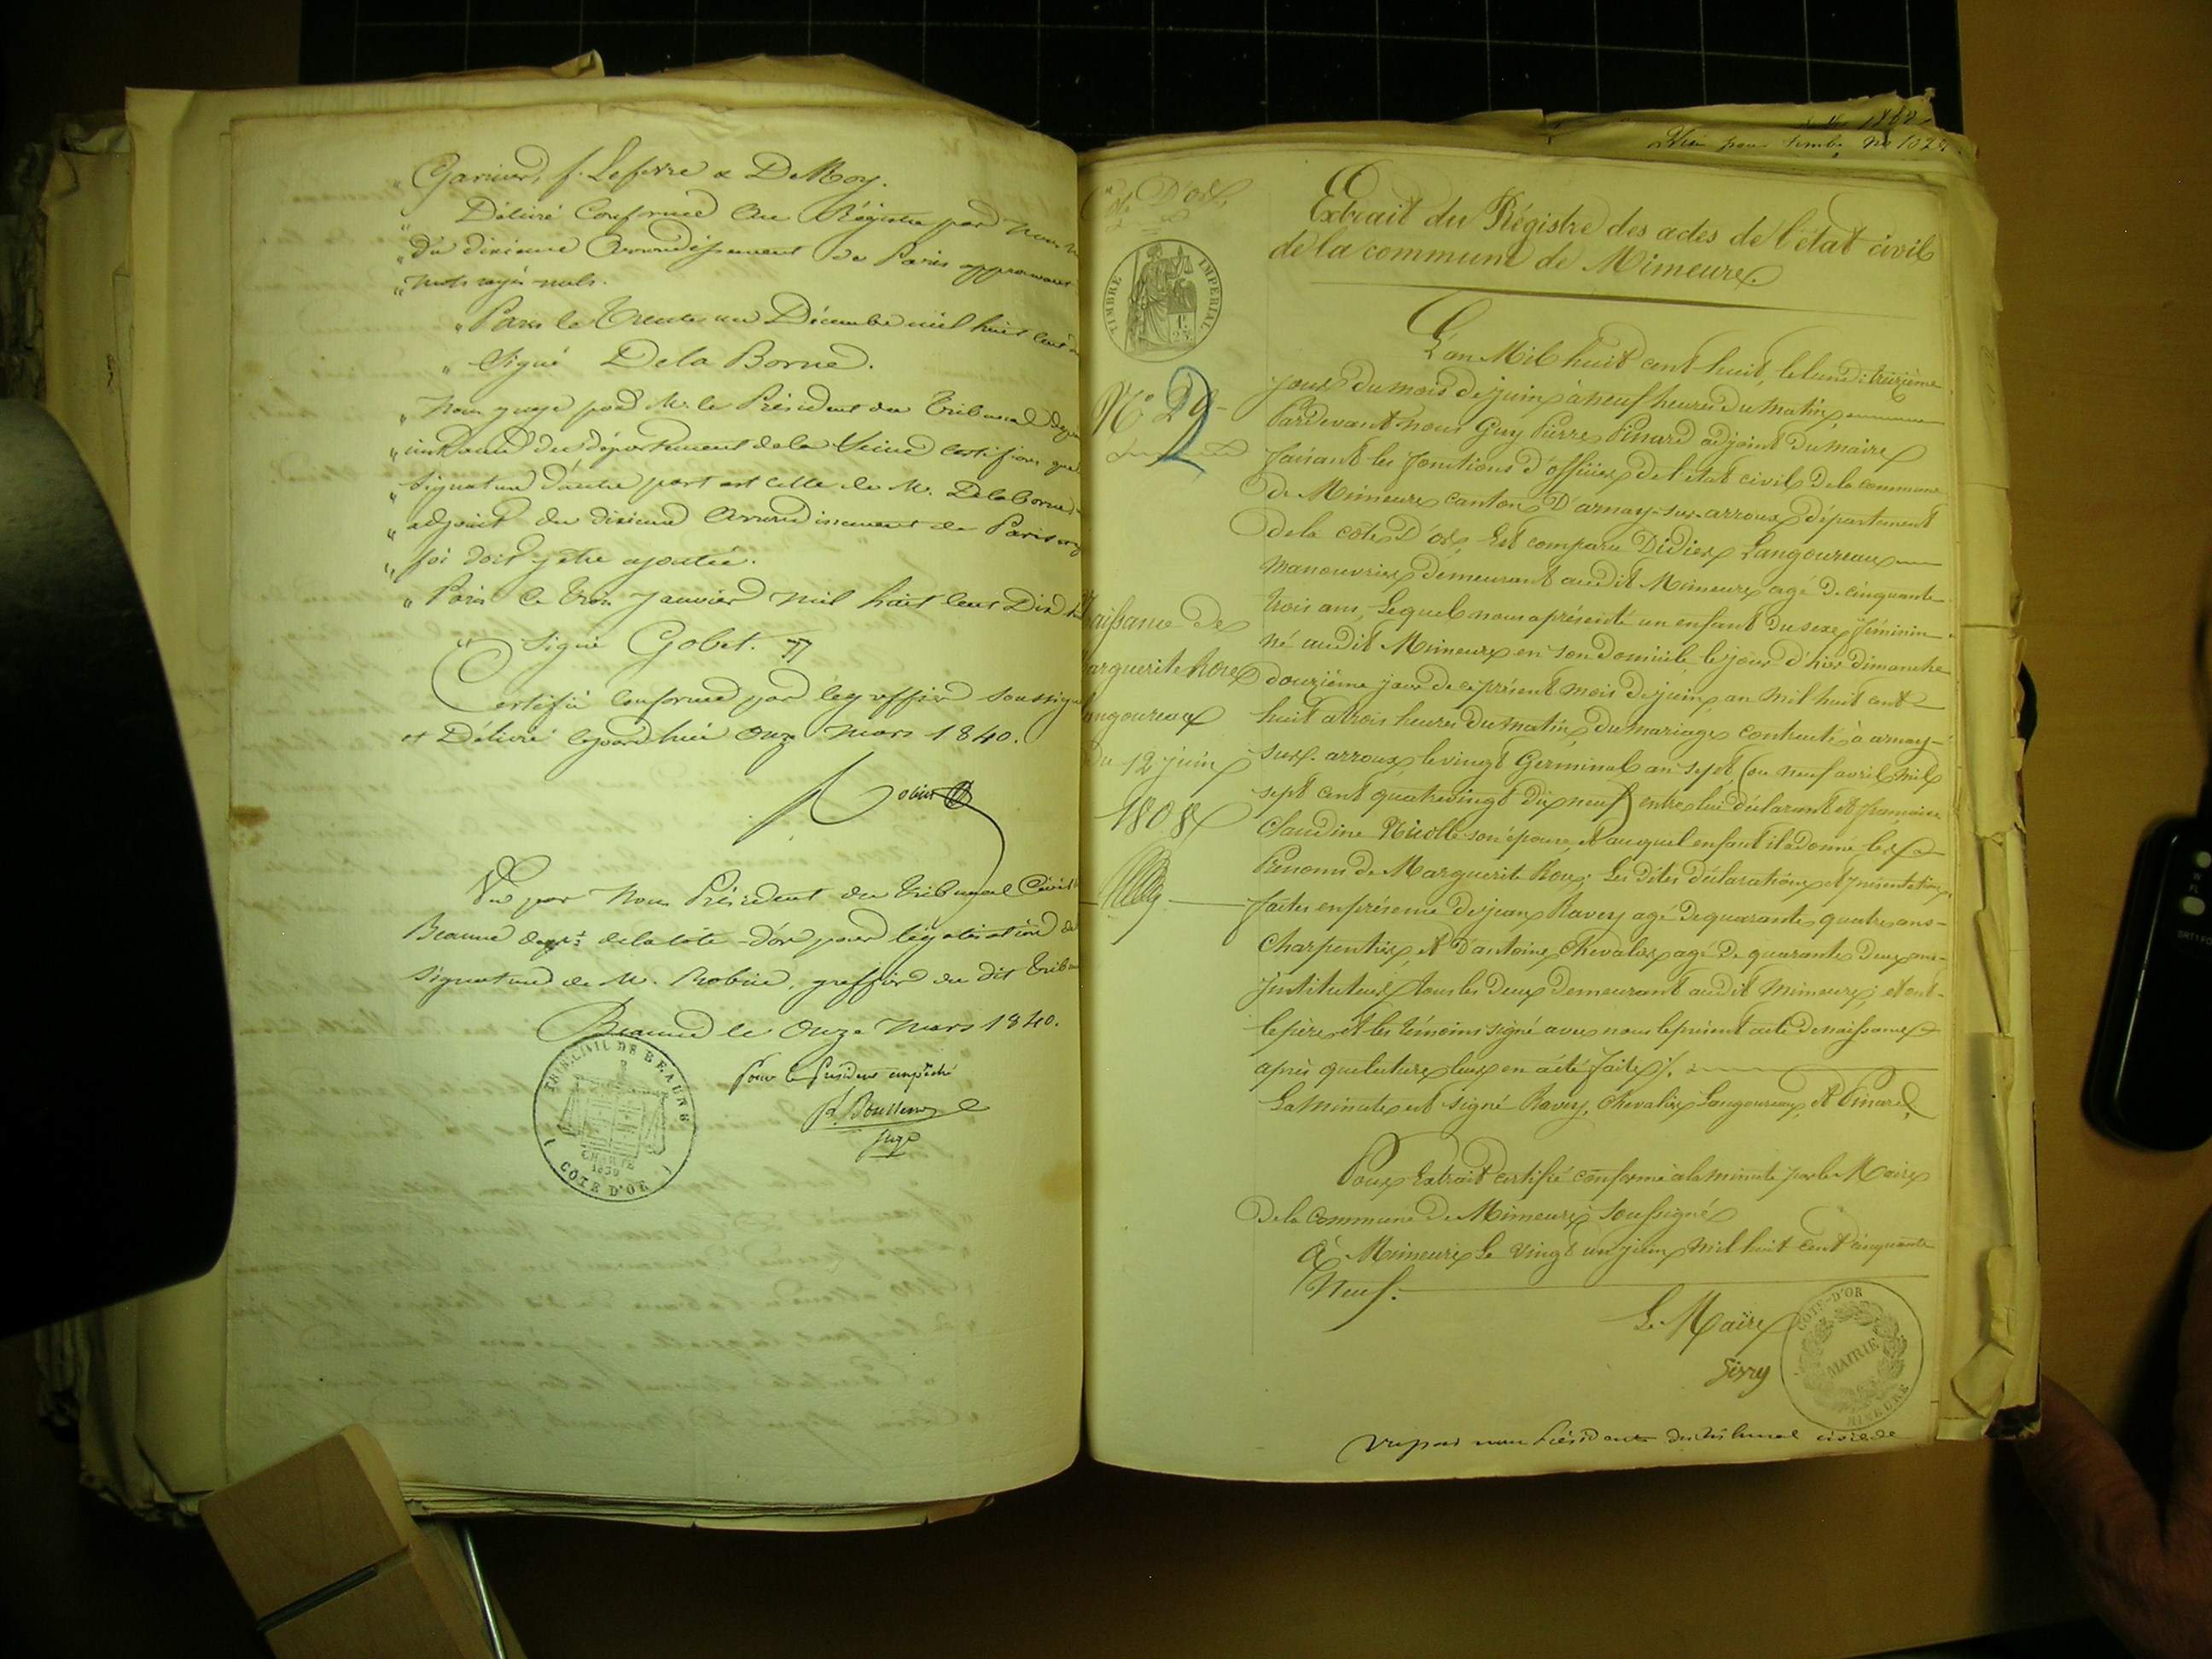 " Garnier, f. Lefevre & DeMoy.
" Délivré conforme au Régistre par nous
" du dixieme Arrondissement de Paris approuvant
" mots rayés nuls.
" Paris le Trente un Décembre mil huit cent
" Signé Dela Borne.
" Nous juge pour Mr. le Président du Tribunal
" instance du département de la Seine certifions que
" signature d'autre part est celle de M. Delaborne
" adjoint du dixieme Arrondissement de Paris
" foi doit y être ajoutée.
" Paris le trois Janvier mil huit cent Dix
" Signé Gobet. "
Certifié conforme par le greffier soussigné
et Délivré cejourd'hui onze Mars 1840.
Robin
Vu par nous Président du tribunal Civil
Beaune dept. de la Côte-d'or pour légalisation de
signature de M. Robin, greffier du dit tribunal
Beaune le Onze Mars 1840.
Pour le Président empêché
Juge
TRIB. CIVIL DE BEAUNE
CHARTE
1830
CÔTE D'OR
1859
Visé pour timbre No 102
D'or,
TIMBRE IMPERIAL
1f.
25c.
No 29
2
Naissance de
Marguerite Rose
Langoureau
Du 12 juin
1808
Extrait du Régistre des actes de l'état civil
de la commune de Mimeure.
L'an Mil huit cent huit, le lundi treizième
jour du mois de juin à neuf heures du matin,
Pardevant nous Guy Pierre Pinard adjoint du maire
faisant les fonctions d'officier de l'état civil de la commune
de Mimeure canton D'arnay-sur-arroux, département
de la côte D'or, Est comparu Didier Langoureau
manouvrier demeurant audit Mimeure agé de cinquante
trois ans, Lequel nous a présenté un enfant du sexe féminin
né audit Mimeure en son domicile le jour d'hier dimanche
douzième jour de ce présent mois de juin, an mil huit cent
huit a trois heures du matin, du mariage contracté à arnay-
sur-arroux, le vingt Germinal an sept (ou neuf avril mil
sept cent quatrevingt dix neuf) entre lui déclarant et françoise
Claudine Nicolle son épouse et auquel enfant il a donné les
Prénoms de Marguerite Rose; Les dites déclaration et présentation
faites en présence de jean Ravey agé de quarante quatre ans
charpentier, et D'antoine Chevalier agé de quarante deux ans
jnstituteur, tous les deux demeurant audit mimeure; et ont
le père et les témoins signé avec nous le présent acte de naissance
après que lecture leur en a été faite /.
La minute est signé Ravey, Chevalier, Langoureau, et Pinard,
Pour Extrait certifié conforme à la minute par le Maire
De la commune de Mimeure soussigné
à Mimeure le vingt un juin mil huit cent cinquante
Neuf.
Le Maire
COTE-D'OR
MAIRIE
MIMEURE
Vu par nous Président du tribunal civil de